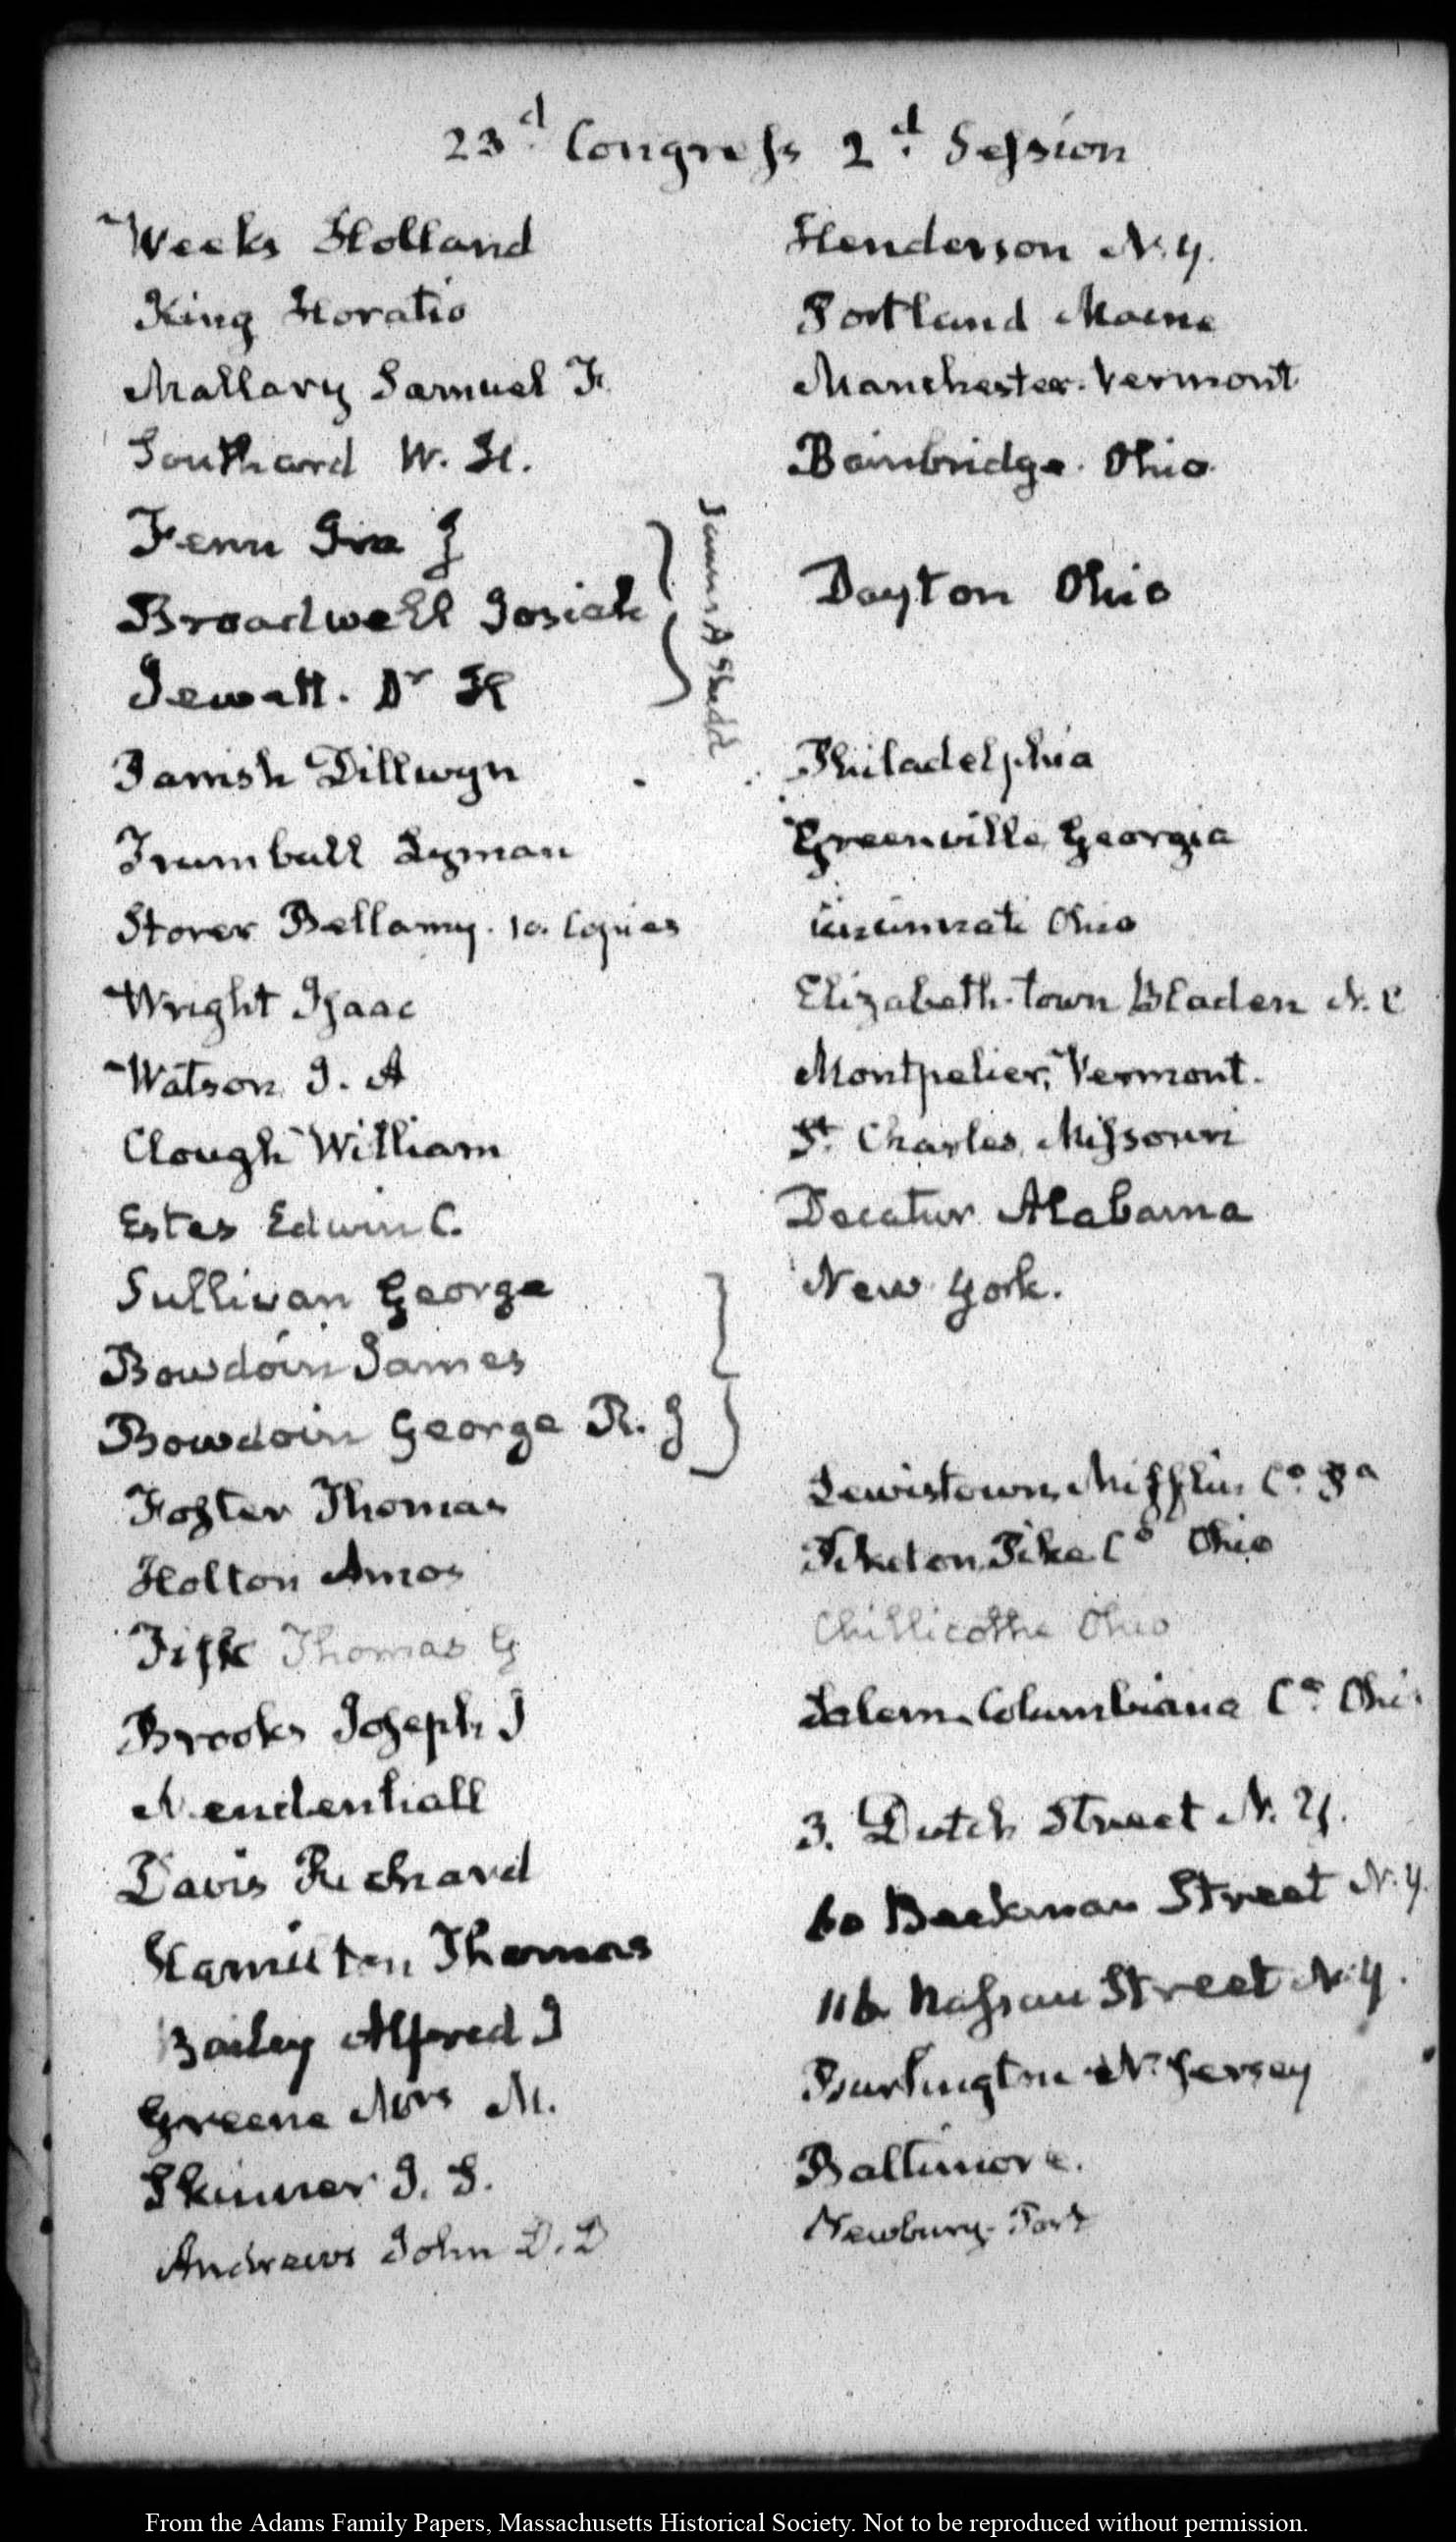 23d. Congress 2d. Session
Weeks Holland Henderson N.Y.
King Horatio Portland Maine
Mallary Samuel Manchester. Vermont
Southard W. H. Bainbridge. Ohio.
Fenn Ira J
James A Shedd
Broadwell Josiah Dayton Ohio
Jewett. Dr H
Parrish Dillwyn Philadelphia
Trumbull Lyman Greenville, Georgia
Storer Bellamy. 10. Copies Cincinnati Ohio
Wright Isaac Elizabeth-town Bladen N.C
Watson J. A Montpelier, Vermont.
Clough William St. Charles, Missouri
Estes Edwin C. Decatur Alabama
Sullivan George New York.
Bowdoin James
Bowdoin George R. J
Foster Thomas Lewistown, Mifflin Co. Pa
Holton Amos Piketon, Pike Co Ohio
Fisk Thomas G Chillicothe Ohio
Brooks Joseph J Salem, Columbiana Co. Ohio
Mendenhall
Davis Richard 3. Dutch Street N.Y.
Hamilton Thomas 60 Beekman Street N.Y.
Bailey Alfred J 116 Nassau Street N.Y.
Greene Mrs M. Burlington N. Jersey
Skinner J. S. Baltimore.
Andrews John D. D Newbury-Port
From the Adams Family Papers, Massachusetts Historical Society. Not to be reproduced without permission.